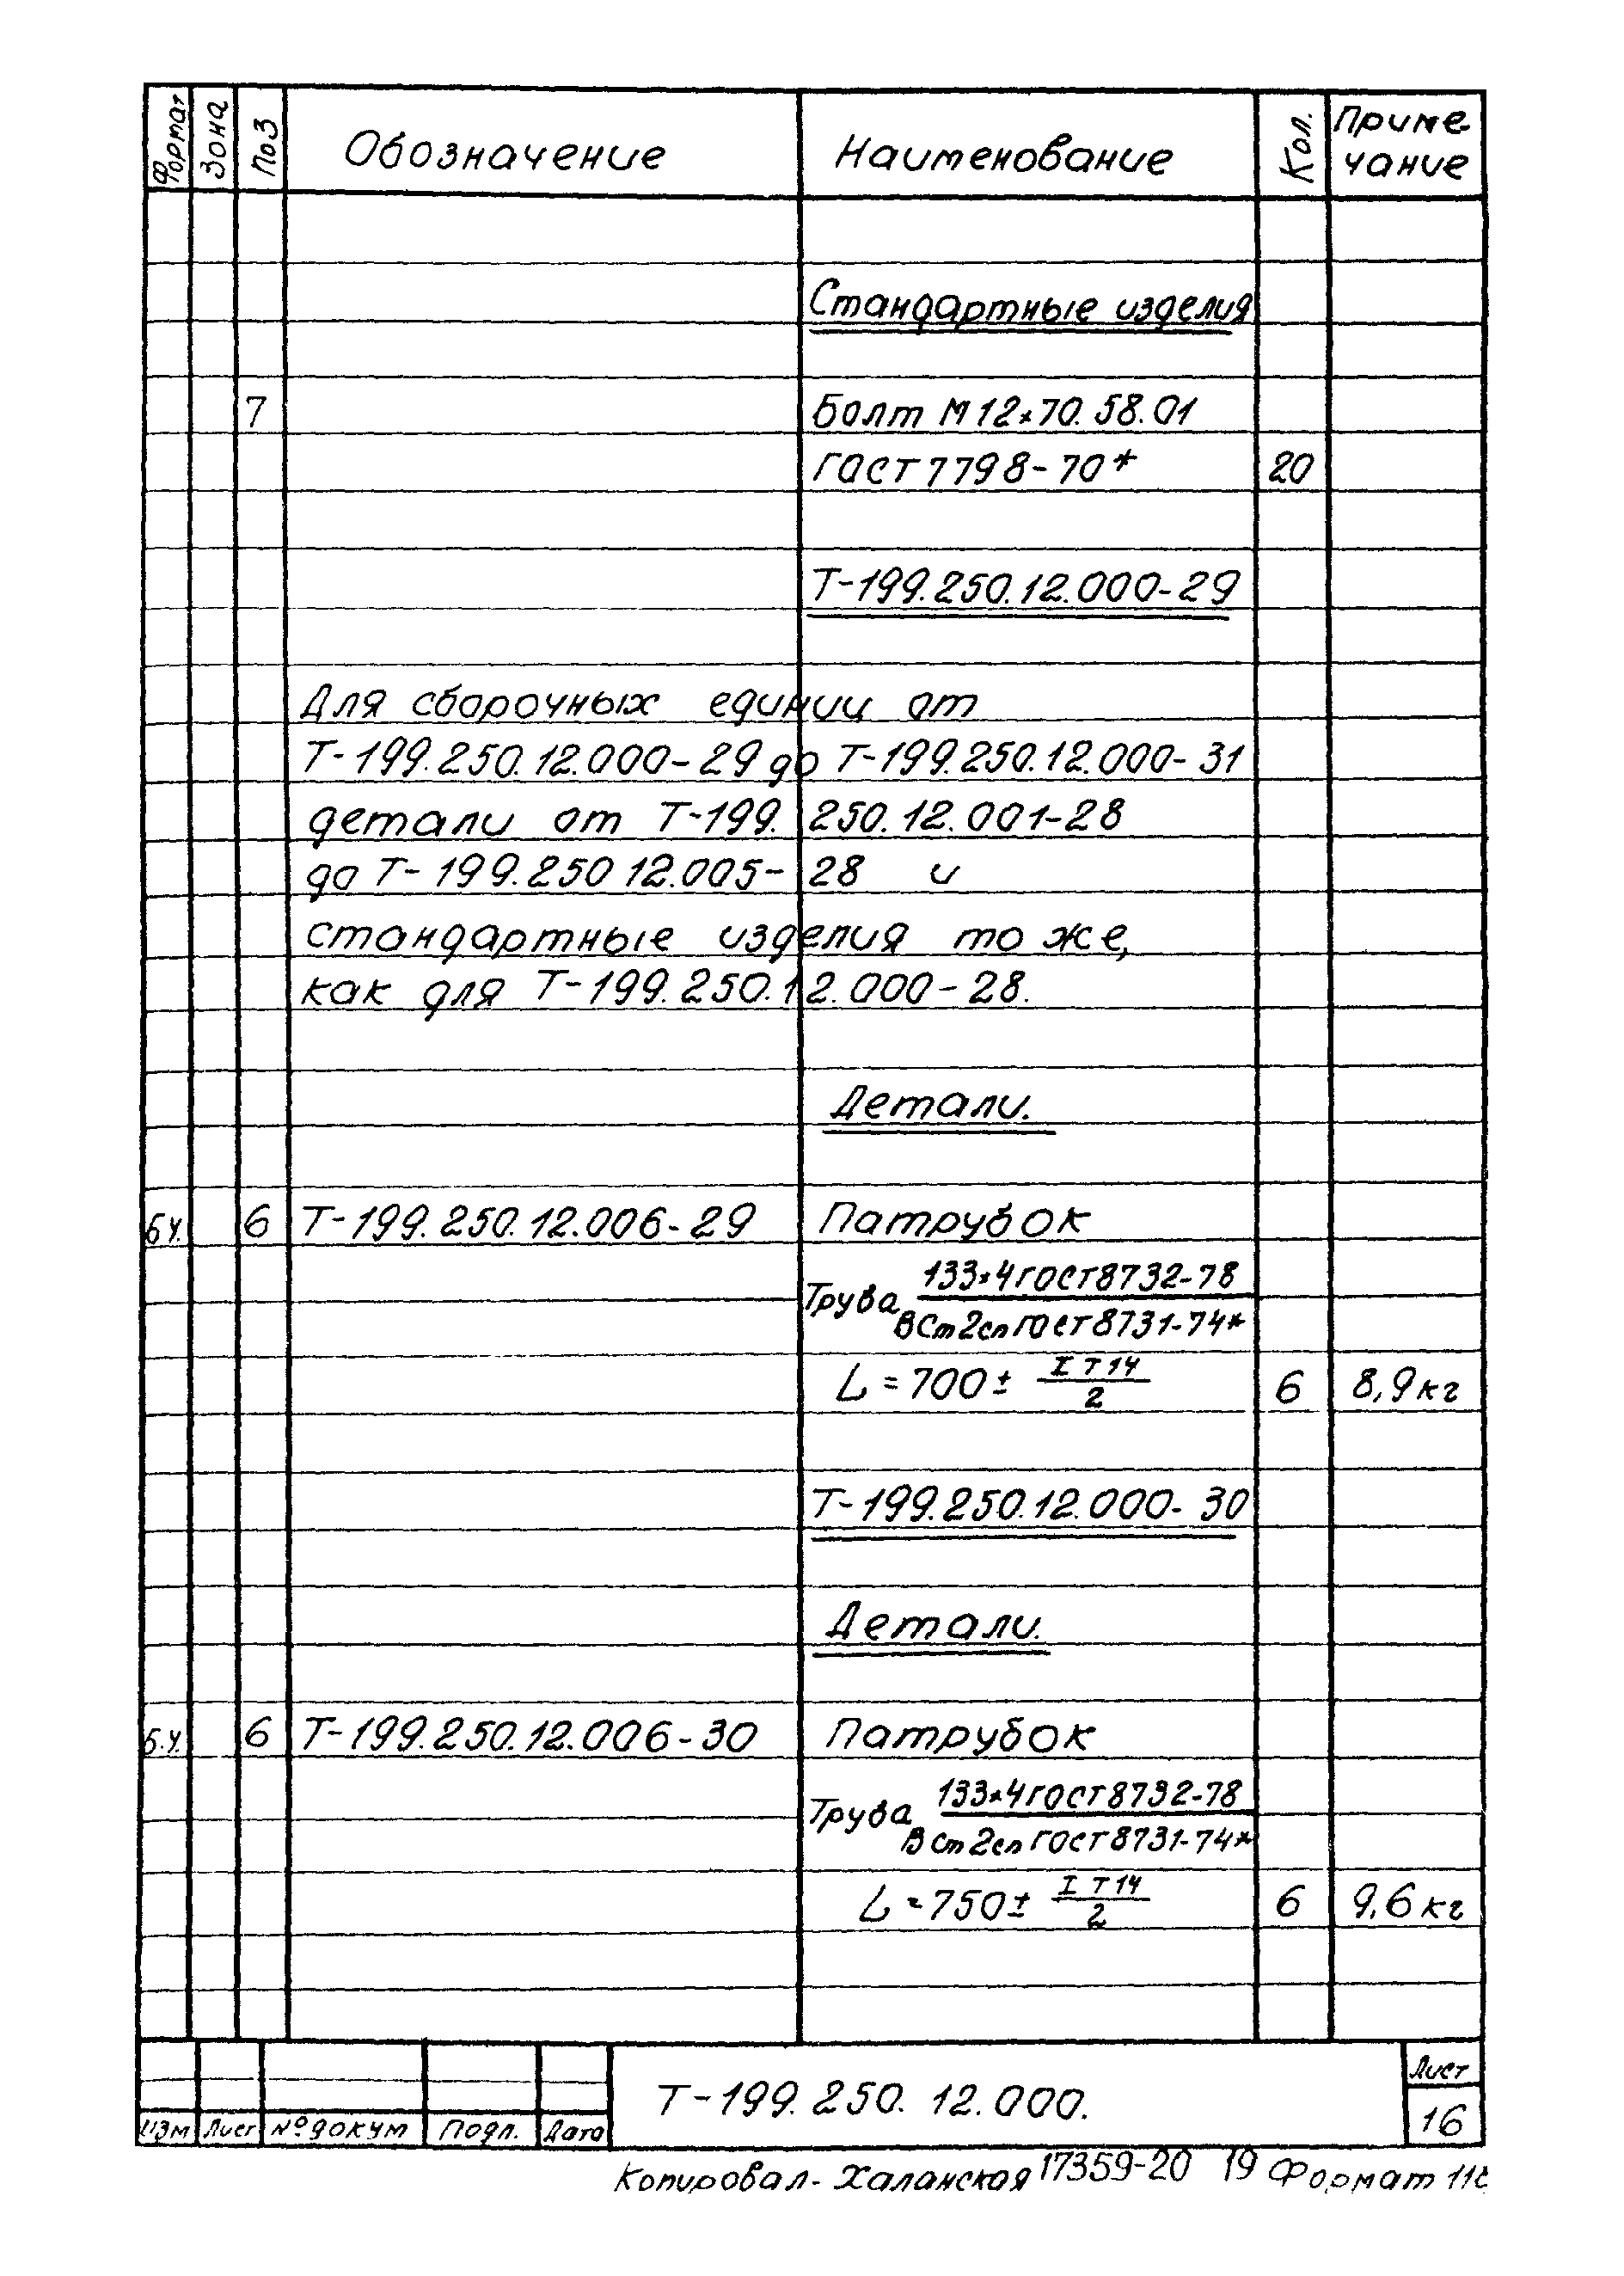 Формат Зона Поз Обозначение Наименование Кол. Приме-
чание
Стандартные изделия
7 Болт М12×70.58.01
ГОСТ 7798-70* 20
Т-199.250.12.000-29
Для сборочных единиц от
Т-199.250.12.000-29 до Т-199.250.12.000-31
детали от Т-199.250.12.001-28
до Т-199.250 12.005-28 и
стандартные изделия то же,
как для Т-199.250.12.000-28.
Детали.
БЧ. 6 Т-199.250.12.006-29 Патрубок
133×4 ГОСТ 8732-78
Труба
ВСт2сп ГОСТ 8731-74*
L = 700 ± IT14
2
6 8,9 кг
Т-199.250.12.000-30
Детали.
Б.Ч. 6 Т-199.250.12.006-30 Патрубок
133×4 ГОСТ 8732-78
Труба
ВСт2сп ГОСТ 8731-74*
L = 750 ± IT14
2
6 9,6 кг
Т-199.250.12.000.
Лист
16
Изм Лист № докум Подл. Дата
Копировал - Халанская 17359-20 19 Формат